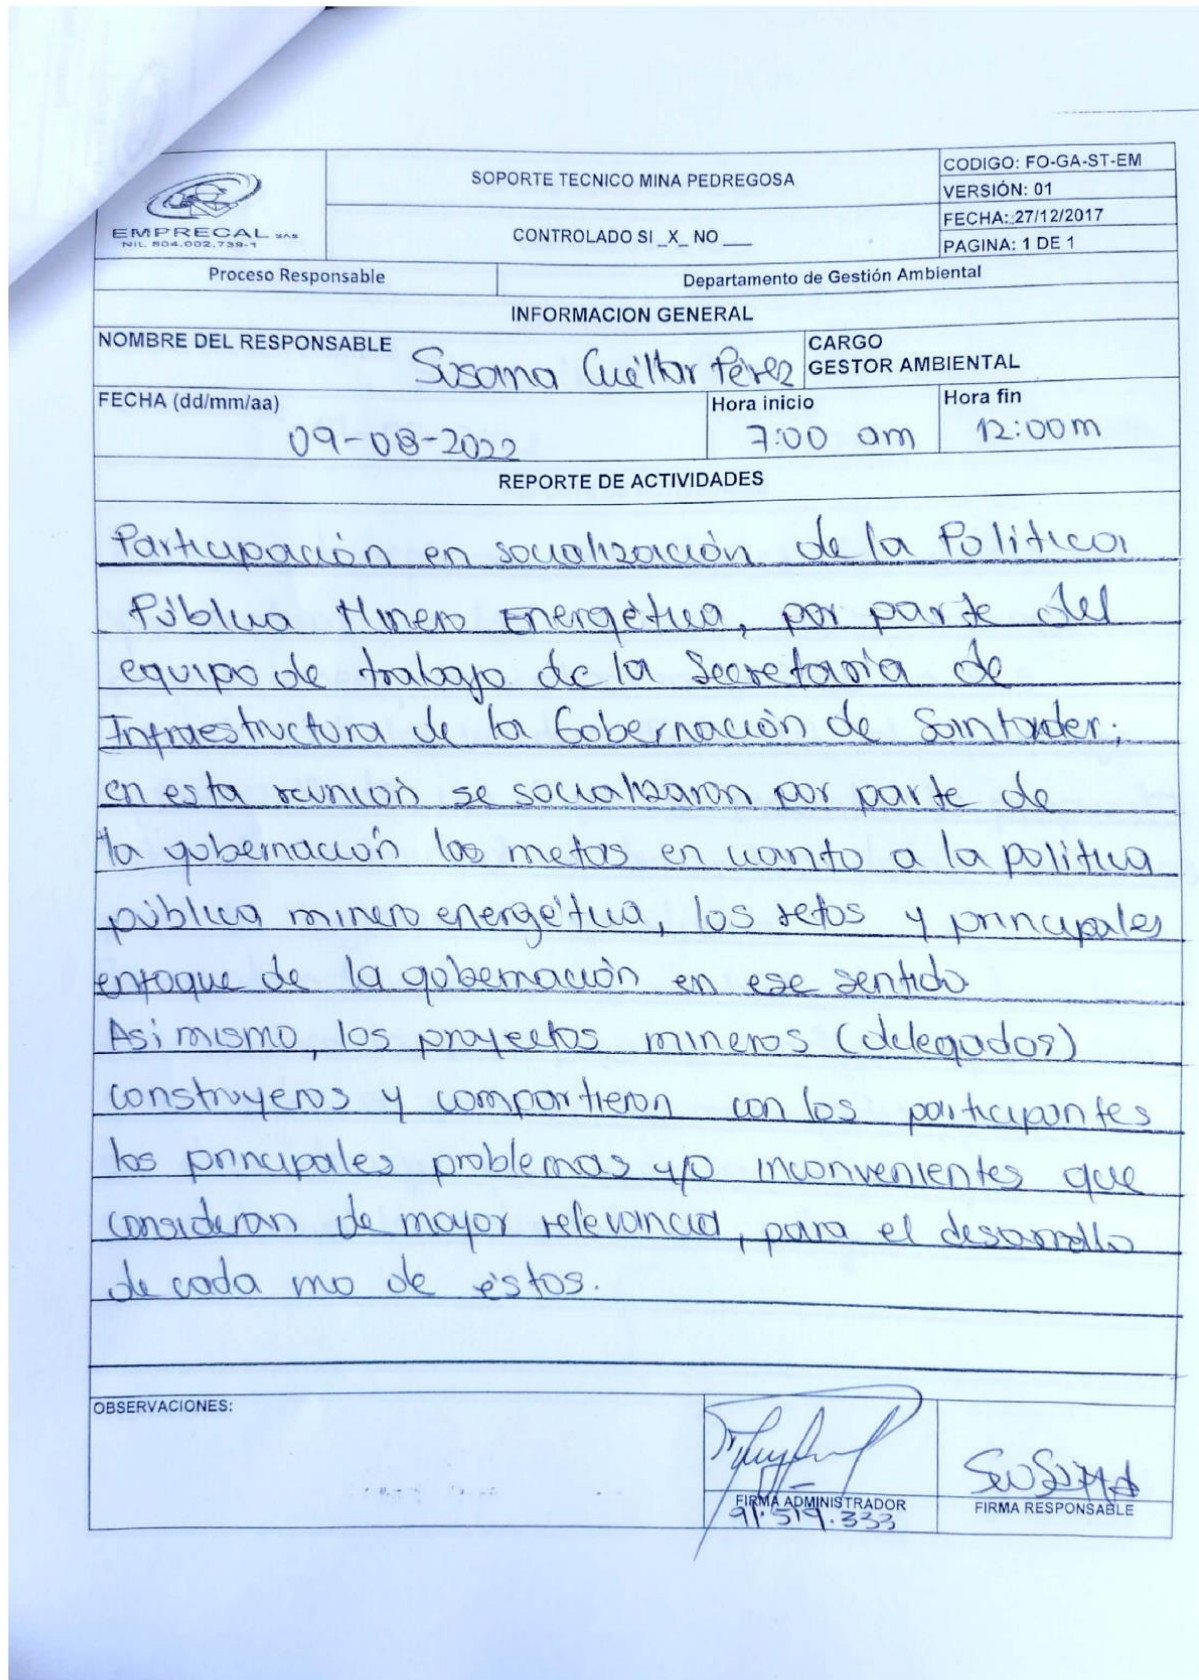 EMPRECAL SAS
NIL 804.002.739-1
SOPORTE TECNICO MINA PEDREGOSA
CONTROLADO SI _X_ NO ___
CODIGO: FO-GA-ST-EM
VERSIÓN: 01
FECHA: 27/12/2017
PAGINA: 1 DE 1
Proceso Responsable
Departamento de Gestión Ambiental
INFORMACION GENERAL
NOMBRE DEL RESPONSABLE
Susana Cuéllar Pérez
CARGO
GESTOR AMBIENTAL
FECHA (dd/mm/aa)
09-08-2022
Hora inicio
7:00 am
Hora fin
12:00m
REPORTE DE ACTIVIDADES
Participación en socialización de la Política
Pública Minero Energética, por parte del
equipo de trabajo de la Secretaría de
Infraestructura de la Gobernación de Santander;
en esta reunión se socializaron por parte de
la gobernación las metas en cuanto a la política
pública minero energética, los retos y principales
enfoque de la gobernación en ese sentido
Asi mismo, los proyectos mineros (delegados)
construyeros y compartieron con los participantes
los principales problemas y/o inconvenientes que
consideran de mayor relevancia, para el desarrollo
de cada uno de éstos.
OBSERVACIONES:
FIRMA ADMINISTRADOR
91.519.333
Susana
FIRMA RESPONSABLE